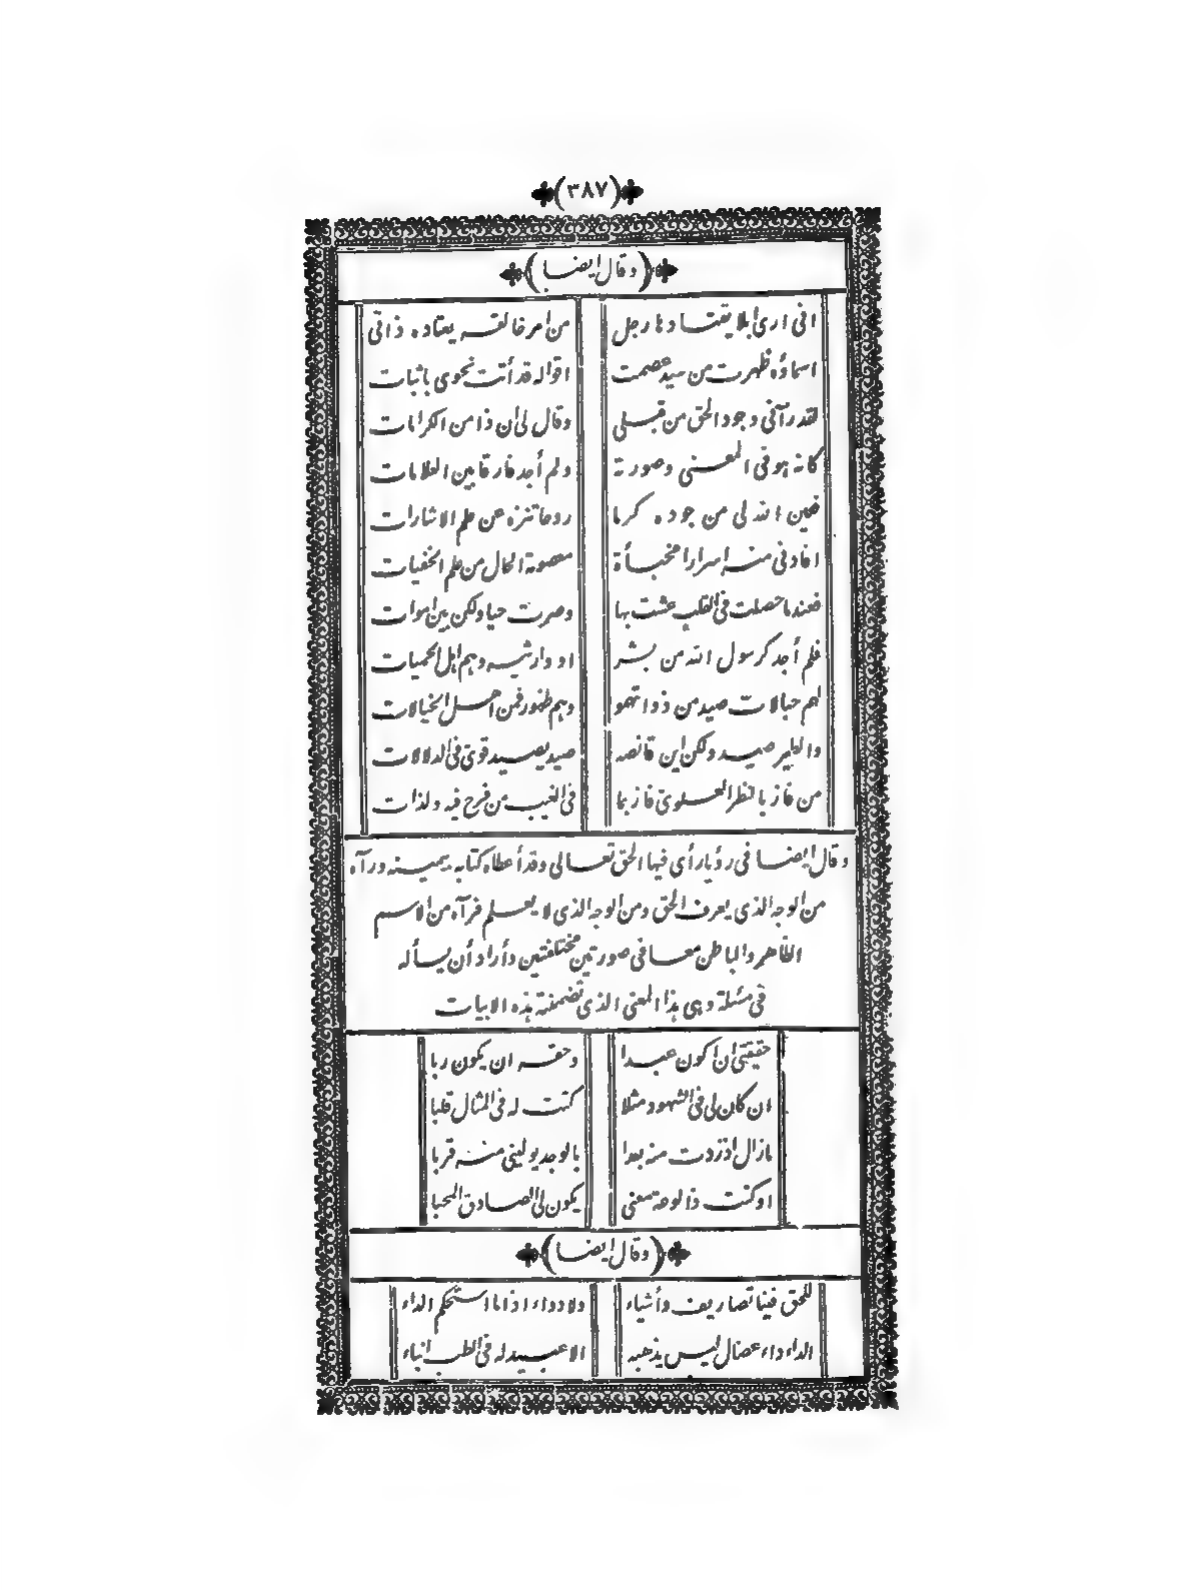 (٣٨٧)
(وقال ايضا)
انى ارى ابلا يقتادها رجل من امر خالقه يعتاده ذاتى
اسماؤه ظهرت من سيد عصمت اقواله قد أتت نحوى باثبات
لقد رآنى وجود الحق من قبلى وقال لى ان ذا من الكرامات
كانه هو فى المعنى وصورته ولم أجد فارقا بين العلامات
فعين الله لى من جوده كرما روحا تنزه عن علم الاشارات
افادنى منه اسرارا مخبأة معصومة الحال من علم الخفيات
فعندما حصلت فى القلب عشت بها وصرت حيا ولكن بين اموات
فلم أجد كرسول الله من بشر او وارثيه وهم اهل الحميات
لهم حبالات صيد من ذواتهمو وهم طيور فمن اهل الخيالات
والطير صيد ولكن اين قانصه صيد يصيد قوى فى الدلالات
من فاز بالنظر العلوى فاز بما فى الغيب من فرح فيه ولذات
وقال ايضا فى رؤيا رأى فيها الحق تعالى وقد أعطاه كتابه بيمينه ورآه
من الوجه الذى يعرف الحق ومن الوجه الذى لا يعلم فرآه من الاسم
الظاهر والباطن معا فى صورتين مختلفتين وأراد أن يسأله
فى مسئلة وهى هذا المعنى الذى تضمنته هذه الابيات
حقيقتى ان اكون عبدا وحقه ان يكون ربا
ان كان لى فى الشهود مثلا كنت له فى المثال قلبا
مازال اذ زدت منه بعدا بالوجد يولينى منه قربا
اوكنت ذا لوعة معنى يكون لى الصادق المحبا
(وقال ايضا)
للحق فينا تصاريف وأشياء ولا دواء اذا ما استحكم الداء
الداء داء عضال ليس يذهبه الا عبيد له فى الطب انباء